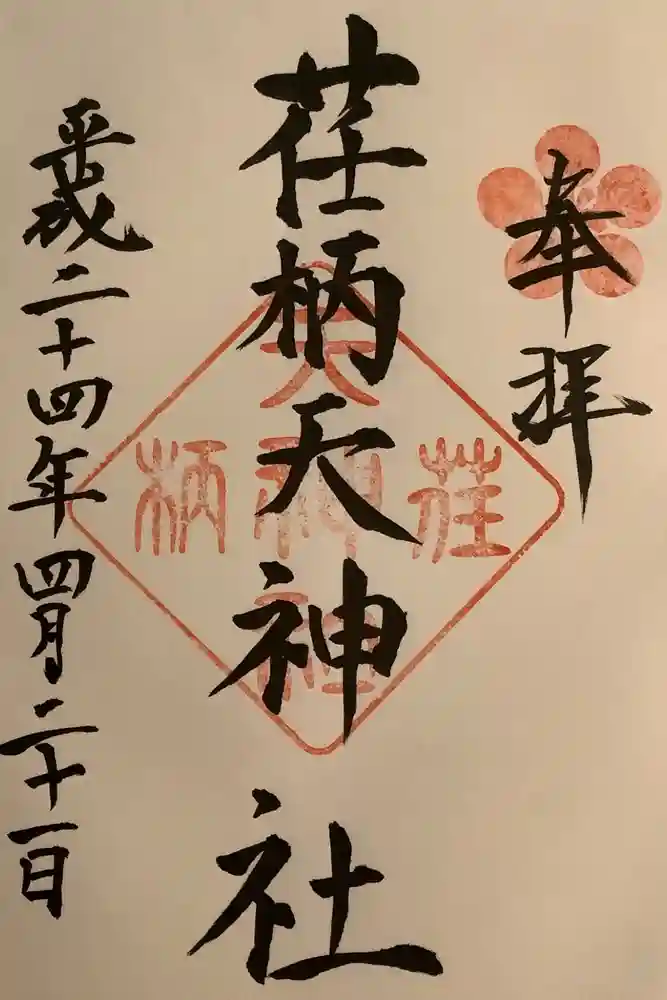 奉拝
荏柄天神社
平成二十四年四月二十一日
天
荏
神
柄
社